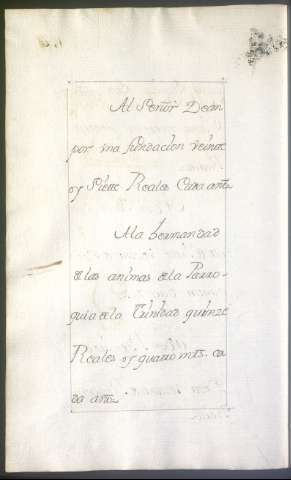 Al Señor Dean
por vna fundacion veinte
y Siette Reales Cada año.
A la hermandad
de las animas de la Parro-
quia de la Trinidad quinze
Reales y quatro mrs. ca
da año